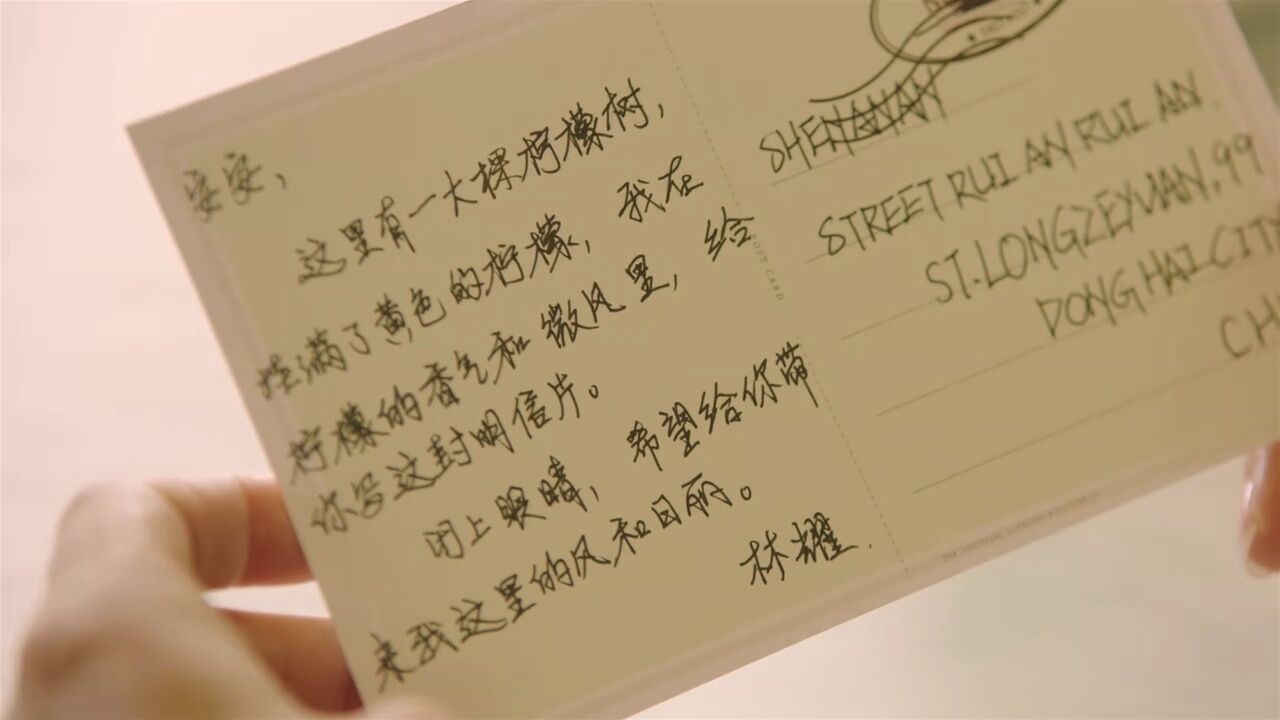 安安，
这里有一大棵柠檬树，
挂满了黄色的柠檬，我在
柠檬的香气和微风里，给
你写这封明信片。
闭上眼睛，希望给你带
来我这里的风和日丽。
林耀
POST CARD
SHENANAN
STREET RUI AN RUI AN
ST.LONGZEYUAN.99
DONGHAI CITY
CH